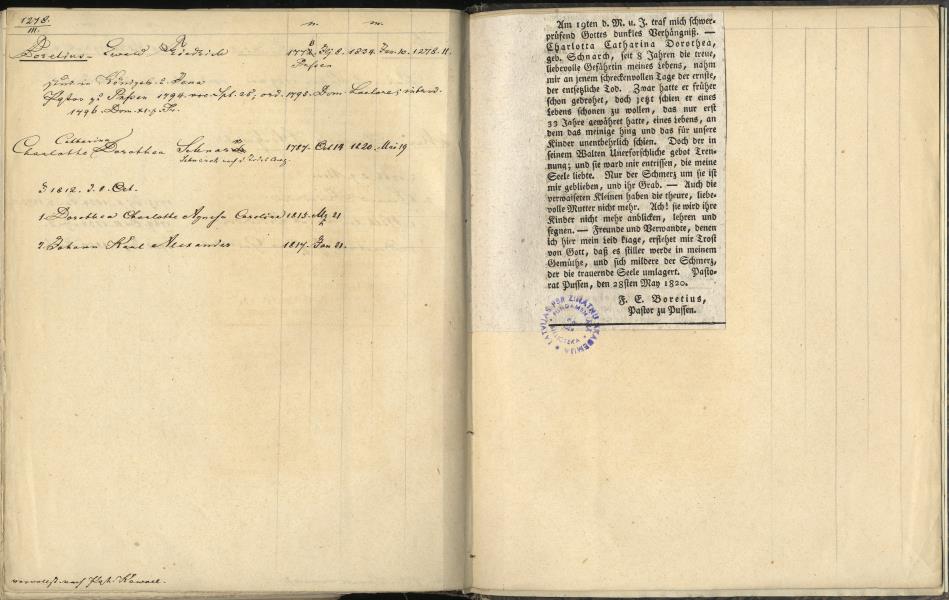 1278.
III.
Boretius Ewald Friedrich 8. 1824. Jan. 10. 1278. II.
Pussen
Pastor zu Pussen 1794.
1796.
Catharina
Charlotte Dorothea Schnar 1787. Oct 14 1820. Mai 19
1812. Oct.
1. Dorothea Charlotte Agnesa Carolina 1815. Mz 21
2. Johann Karl Alexander 1817. Jan 21.
Am 19ten d. M. u. J. traf mich schwer-
prüfend Gottes dunkles Verhängniß. —
Charlotta Catharina Dorothea,
geb. Schnarch, seit 8 Jahren die treue,
liebevolle Gefährtin meines Lebens, nahm
mir an jenem schreckenvollen Tage der ernste,
der entsetzliche Tod. Zwar hatte er früher
schon gedrohet, doch jetzt schien er eines
Lebens schonen zu wollen, das nur erst
33 Jahre gewähret hatte, eines Lebens, an
dem das meinige hing und das für unsere
Kinder unentbehrlich schien. Doch der in
seinem Walten Unerforschliche gebot Tren-
nung; und sie ward mir entrissen, die meine
Seele liebte. Nur der Schmerz um sie ist
mir geblieben, und ihr Grab. — Auch die
verwaiseten Kleinen haben die theure, liebe-
volle Mutter nicht mehr. Ach! sie wird ihre
Kinder nicht mehr anblicken, lehren und
segnen. — Freunde und Verwandte, denen
ich hier mein Leid klage, erflehet mir Trost
von Gott, daß es stiller werde in meinem
Gemüthe, und sich mildere der Schmerz,
der die trauernde Seele umlagert. Pasto-
rat Pussen, den 28sten May 1820.
F. E. Boretius,
Pastor zu Pussen.
LATVIJAS PSR ZINĀTŅU AKADEMIJA
FUNDAMENTĀLĀ
BIBLIOTEKA
vervollst. nach Past. Kawall.